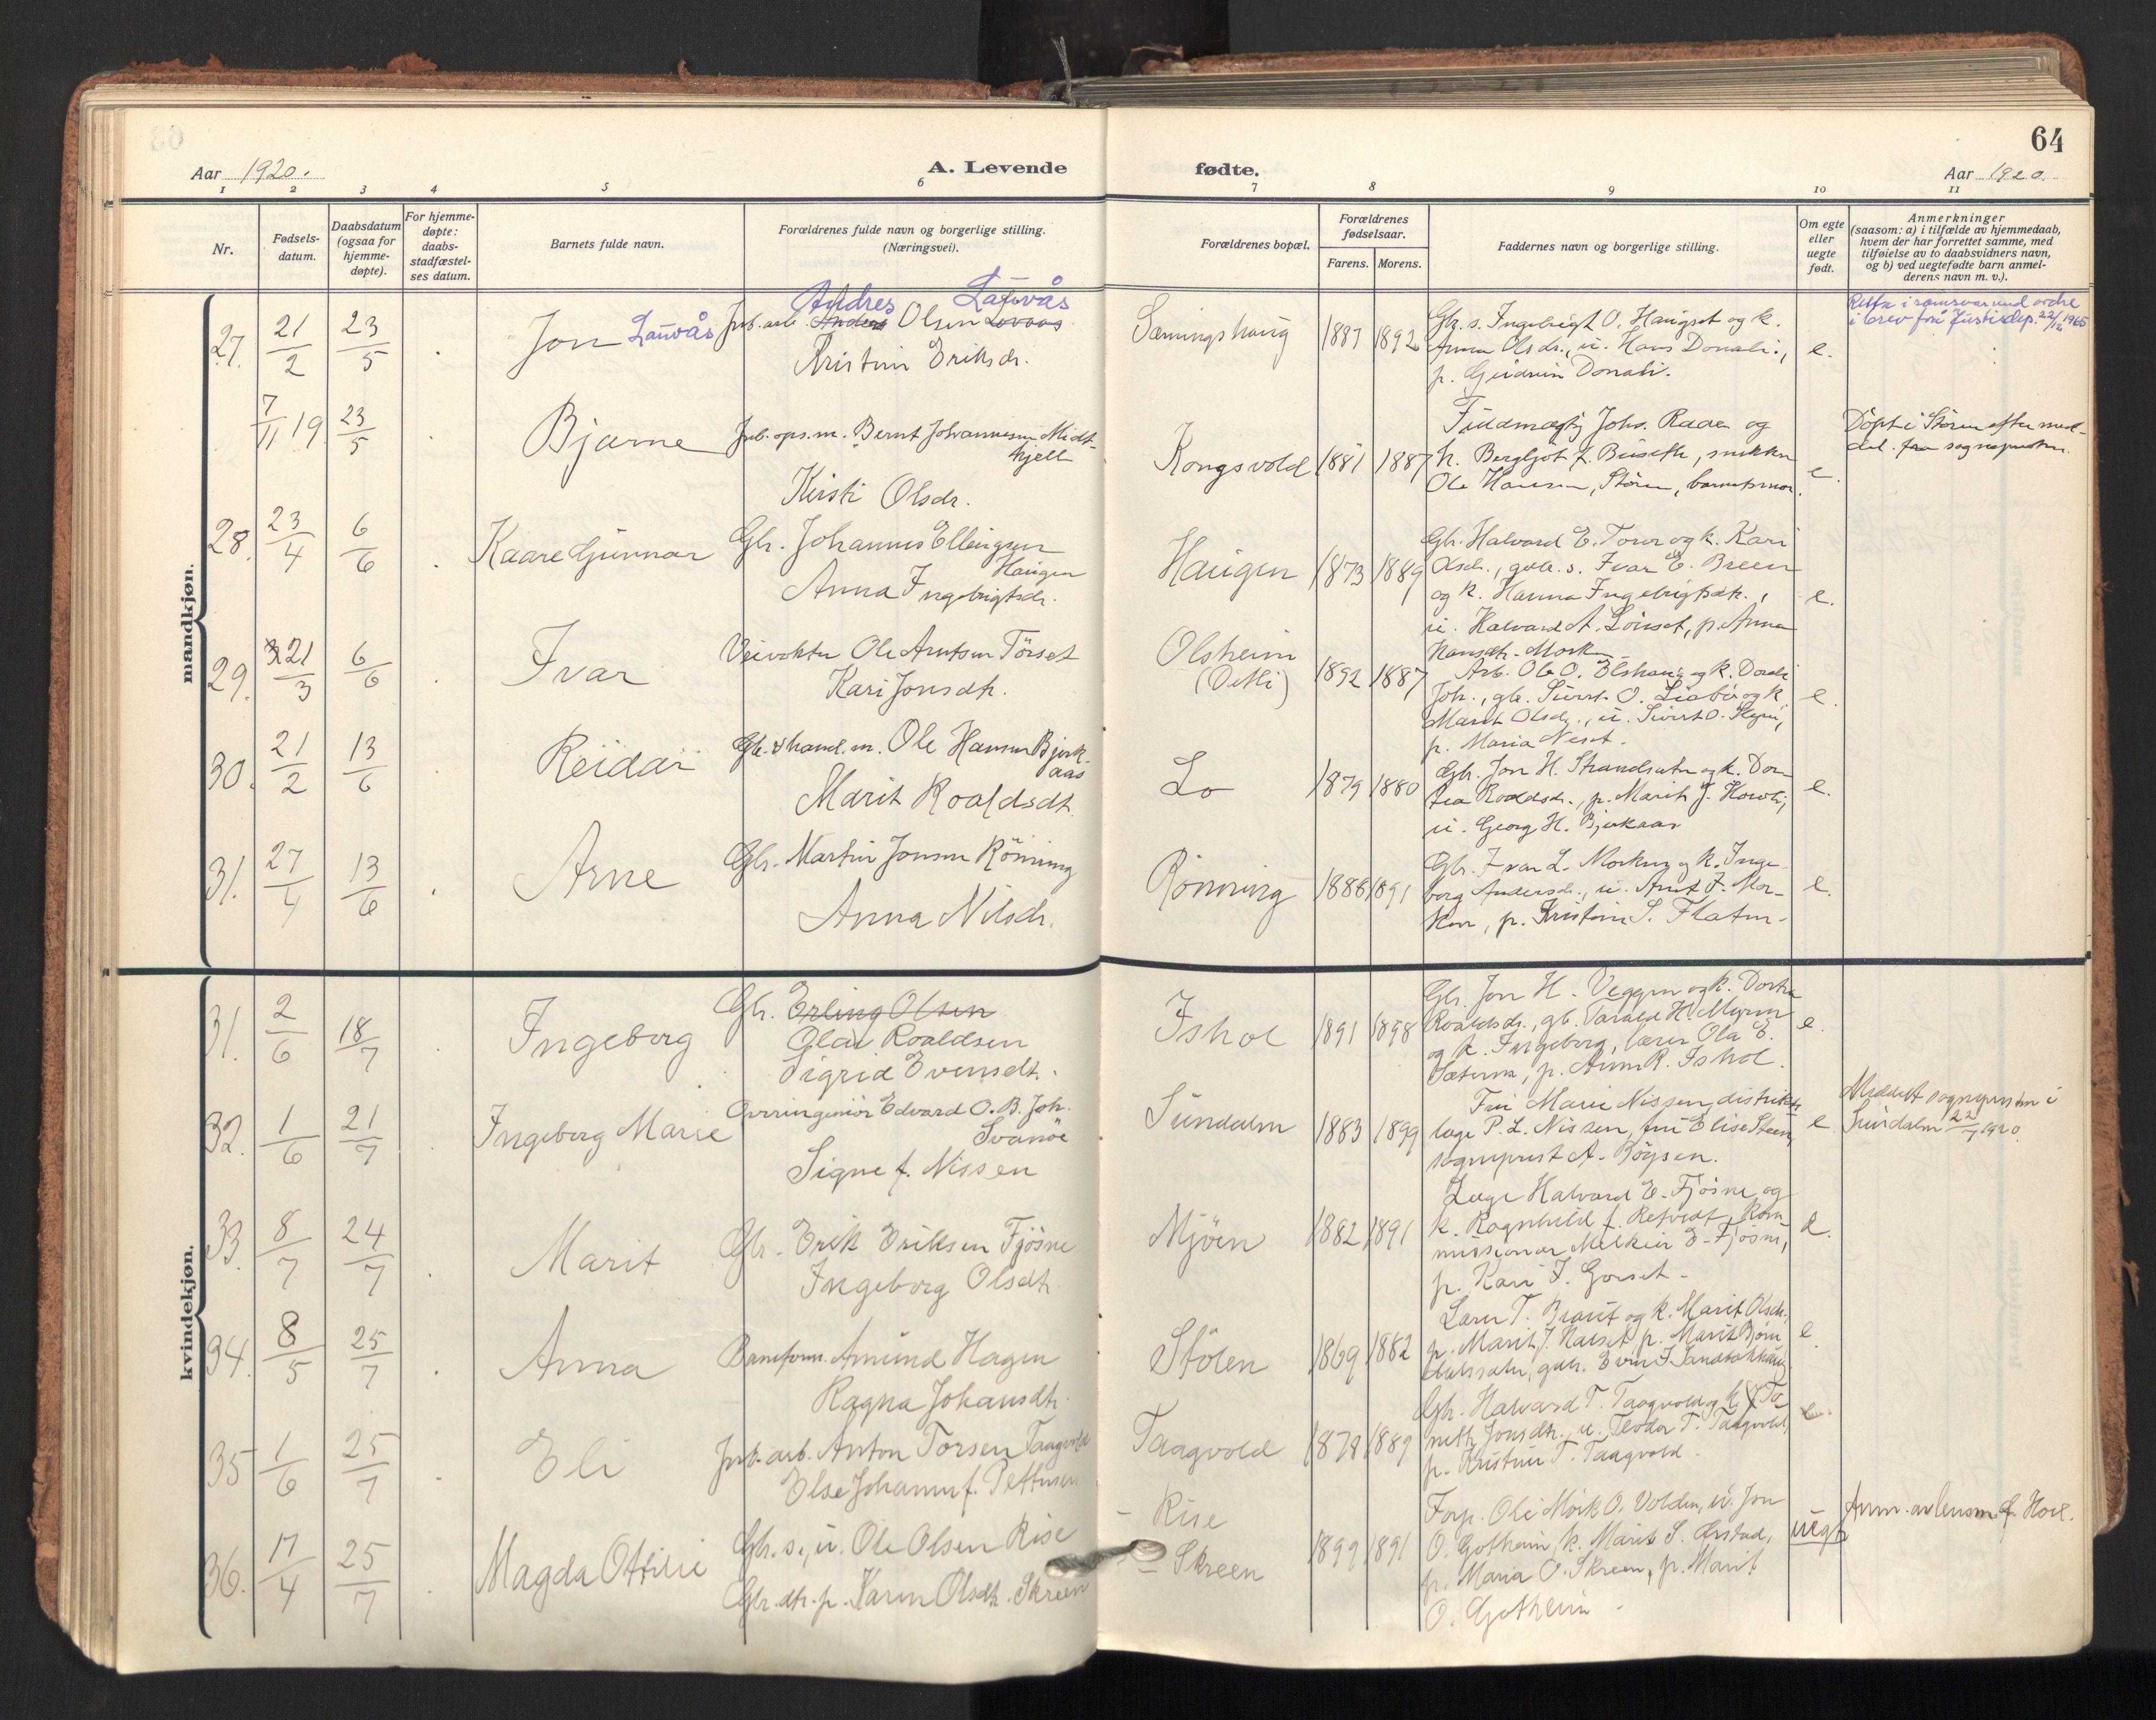 64
Aar 1920.
A. Levende
fødte.
Aar 1920.
1 2 3 4 5 6 7 8 9 10 11
Nr.
Fødsels-
datum.
Daabsdatum
(ogsaa for
hjemme-
døpte).
For hjemme-
døpte:
daabs-
stadfæstel-
ses datum.
Barnets fulde navn.
Forældrenes fulde navn og borgerlige stilling.
(Næringsvei).
Forældrenes bopæl.
Forældrenes
fødselsaar.
Farens. Morens.
Faddernes navn og borgerlige stilling.
Om egte
eller
uegte
født.
Anmerkninger
(saasom: a) i tilfælde av hjemmedaab,
hvem der har forrettet samme, med
tilføielse av to daabsvidners navn,
og b) ved uegtefødte barn anmel-
derens navn m. v.).
mandkjøn.
27. 21/2 23/5 Jon Lauvås
Jnb. arb. Anders Olsen Lovaas
Andres Lauvås
Kristine Eriksdr.
Sæmingshaug 1887 1892
Gbr. s. Ingebrigt O. Haugset og k.
Anna Olsdr., u. Hans Donali,
p. Gudrun Donali.
e.
i brev frå Justisdep. 22/12 1965
7/11 19 23/5 Bjarne
Jnb. ops. m. Bernt Johannesen Midt-
hjell
Kirsti Olsdr.
Kongsvold 1881 1887
Johs. Raaen og
k. Bergljot f. Buseth, snekker
Ole Hansen, Støren, barnets mor.
e.
Döpt i Støren efter med-
del. fra sognepresten.
28. 23/4 6/6 Kaare Gunnar
Gbr. Johannes Ellingsen
Haugen
Anna Ingebrigtsdr.
Haugen 1873 1889
Gbr. Halvard E. Torve og k. Kari
Olsdr., gbr. s. Ivar E. Breen
og k. Hanna Ingebrigtsdr.,
u. Halvard A. Lönset, p. Anna
Hansdtr. Morken
e.
29. 21/3 6/6 Ivar
Veivokter Ole Arntsen Törset
Kari Jonsdtr.
Olsheim
1892 1887
Arb. Ole O. Elshaug og k. Dordi
Joh., gbr. Sivert O. Liabö og k.
Marit Olsdr., u. Sivert O.
p. Maria Neset.
e.
30. 21/2 13/6 Reidar
Gbr. & hand. m. Ole Hansen Bjerk-
aas
Marit Roaldsdt.
Lo 1879 1880
Gbr. Jon H. Strandsæter og k. Dor-
tea Roaldsdr., p. Marit J. Horvli,
u. Georg H. Bjerkaas
e.
31. 27/4 13/6 Arne
Gbr. Martin Jonsen Rönning
Anna Nilsdr.
Rönning 1886 1891
Gbr. Ivar L. Morken og k. Inge-
borg Andersdr., u. Arnt I. Mor-
ken, p. Kristine S. Flaten.
e.
kvindekjøn.
31. 2/6 18/7 Ingeborg
Gbr. Erling Olsen
Olav Roaldsen
Sigrid Evensdt.
Ishol 1891 1898
Gbr. Jon H. Veggen og k. Dortea
Roaldsdr., gb. Tarald H. Myren
og k. Ingeborg, lærer Ola E.
Sæteren, p. Anne R. Ishol.
e.
32. 1/6 21/7 Ingeborg Marie
Overingeniör Edvard O. B. Joh.
Svanöe
Signe f. Nissen
Sundalen 1883 1899
Fru Marie Nissen, distrikts-
læge P. L. Nissen, fru Elise Steen,
sogneprest A. Röysen.
e.
Meddelt sognepresten i
Sundalen 22/7 1920.
33. 8/7 24/7 Marit
Gbr. Erik Eriksen Fjösne
Ingeborg Olsdtr.
Mjöen 1882 1891
Læge Halvard E. Fjösne og
k. Ragnhild f. Refvedt, kom-
missionær Melkior E. Fjösne,
p. Kari I. Gorset.
e.
34. 8/5 25/7 Anna
Baneform. Amund Hagen
Ragna Johansdtr.
Stölen 1869 1882
Lærer T. Braut og k. Marit Olsdr.,
p. Marit J. Næset, p. Marit Björn-
gbr. Even I. Sandbakhaug.
e.
35 1/6 25/7 Eli
Jnb. arb. Anton Torsen Taagvold
Else Johanne f. Pettersen
Taagvold 1878 1889
Gbr. Halvard T. Taagvold og k.
Jonsdtr., u. Teodor T. Taagvold,
p. Kristine T. Taagvold.
e.
36. 17/4 25/7 Magda Ottilie
Gbr. s., u. Ole Olsen Rise
Gbr. dtr. p. Karen Olsdt. Skreen
– Rise
– Skreen
1899 1891
Forp. Ole Mörk O. Volden, u. Jon
O. Gotheim, k. Marit S. Örstad,
p. Maria O. Skreen, p. Marit
O. Gotheim.
uegte
Anm. av lensm. f. Hoel.